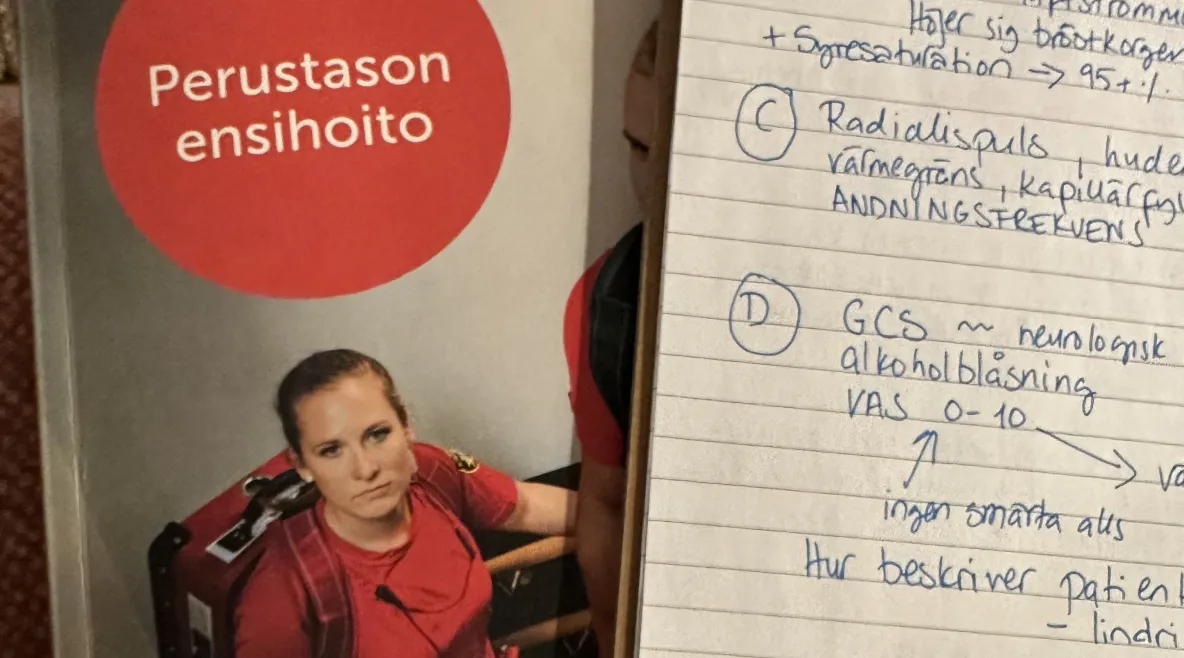 Perustason
ensihoito
Höjer sig bröstkorgen
+ Syresaturation → 95+ %
C Radialispuls, hude
värmegräns, kapillärfyl
ANDNINGSFREKVENS
D GCS ~ neurologisk
alkoholblåsning
VAS 0-10
ingen smärta alls
Hur beskriver patient
- lindri